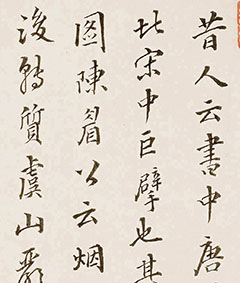 昔人云書中唐
北宋中巨擘也其
图陳眉公云烟
後轉質虞山嚴